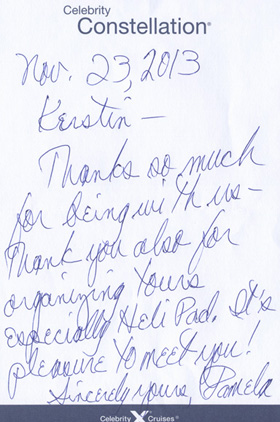 Celebrity
Constellation®
Nov. 23, 2013
Kerstin –
Thanks so much
for being with us –
Thank you also for
organizing Yours
especially Heli Pad. It's
pleasure to meet you!
Sincerely yours, Pamela
Celebrity X Cruises®